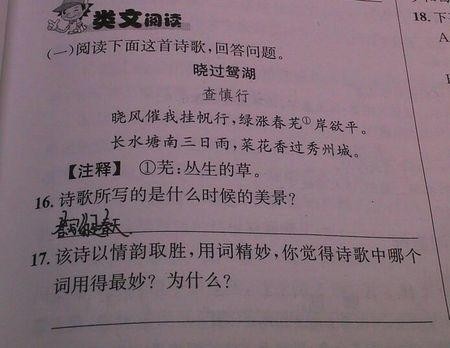 类文阅读
(一)阅读下面这首诗歌,回答问题。
晓过鸳湖
查慎行
晓风催我挂帆行,绿涨春芜①岸欲平。
长水塘南三日雨,菜花香过秀州城。
【注释】 ①芜:丛生的草。
16. 诗歌所写的是什么时候的美景?
17. 该诗以情韵取胜,用词精妙,你觉得诗歌中哪个
词用得最妙? 为什么?
18. 下
A